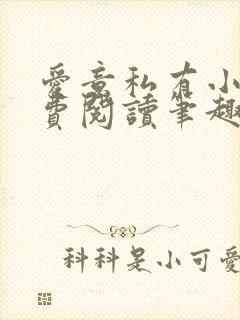 愛意私有小
費閱讀筆趣
科科是小可愛